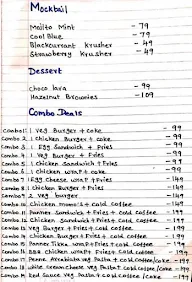 Mocktail
Mojito Mint - 79
Cool Blue - 79
Blackcurrant Krusher - 49
Strawberry Krusher - 49
Dessert
Choco lava - 99
Hazelnut Brownies - 109
Combo Deals
Combo 1 1 Veg Burger + coke - 99
Combo 2 1 Chicken Burger + coke - 99
Combo 3 1 Egg Sandwich + Fries - 99
Combo 4 1 Veg Burger + Fries - 99
Combo 5 1 Chicken Sandwich + Fries - 99
Combo 6 1 Chicken wrap + coke - 99
Combo 7 1 Egg cheese wrap + Fries - 149
Combo 8 1 Chicken Burger + Fries - 149
Combo 9 2 Veg burger - 149
Combo 10 Chicken momos + cold coffee - 149
Combo 11 Panner Sandwich + Fries + cold coffee - 199
Combo 12 Chicken Sandwich + Fries + cold coffee - 199
Combo 13 Veg Burger + Fries + cold coffee - 199
Combo 14 Chicken Burger + Fries + cold coffee - 199
Combo 15 Panner Tikka wrap + Fries + cold coffee - 199
Combo 16 BBQ chicken wrap + Fries + cold coffee - 199
Combo 17 Panner Arrabiata veg Pasta + cold coffee/coke - 199
Combo 18 White cream cheese veg Pasta + cold coffee/coke - 199
Combo 19 Red Sauce veg Pasta + cold coffee/coke - 199